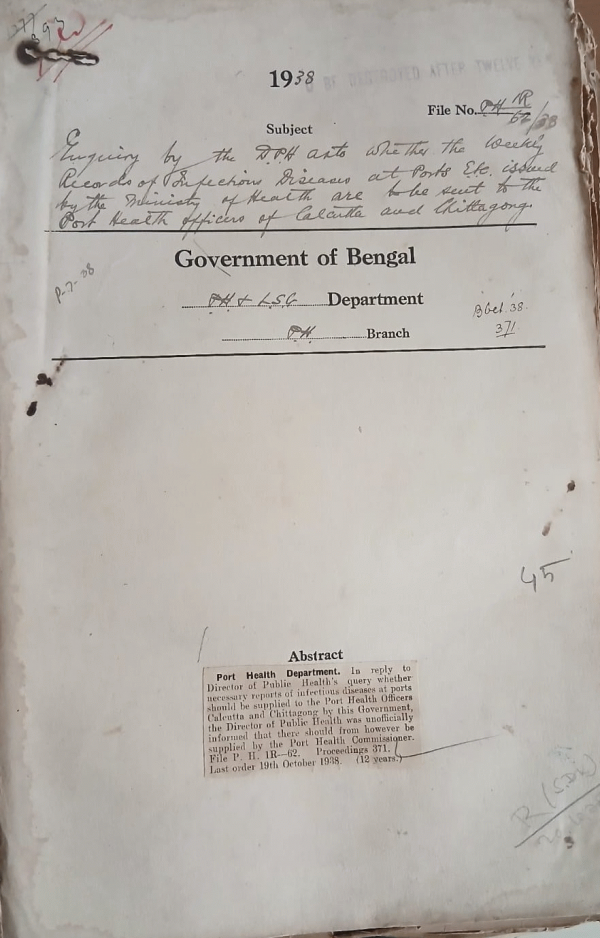 377
893
1938
TO BE DESTROYED AFTER TWELVE
File No. PH 1R
62/38
Subject
Enquiry by the DPH as to whether the Weekly
Records of Infectious Diseases at Ports Etc. issued
by the Ministry of Health are to be sent to the
Port Health Officers of Calcutta and Chittagong.
Government of Bengal
P-7-38
PH & L.S.G Department
PH. Branch
B Oct. '38.
371
45
Abstract
Port Health Department. In reply to
Director of Public Health's query whether
necessary reports of infectious diseases at ports
should be supplied to the Port Health Officers
Calcutta and Chittagong by this Government,
the Director of Public Health was unofficially
informed that there should from however be
supplied by the Port Health Commissioner.
File P. H. 1R—62. Proceedings 371.
Last order 19th October 1938. (12 years.)